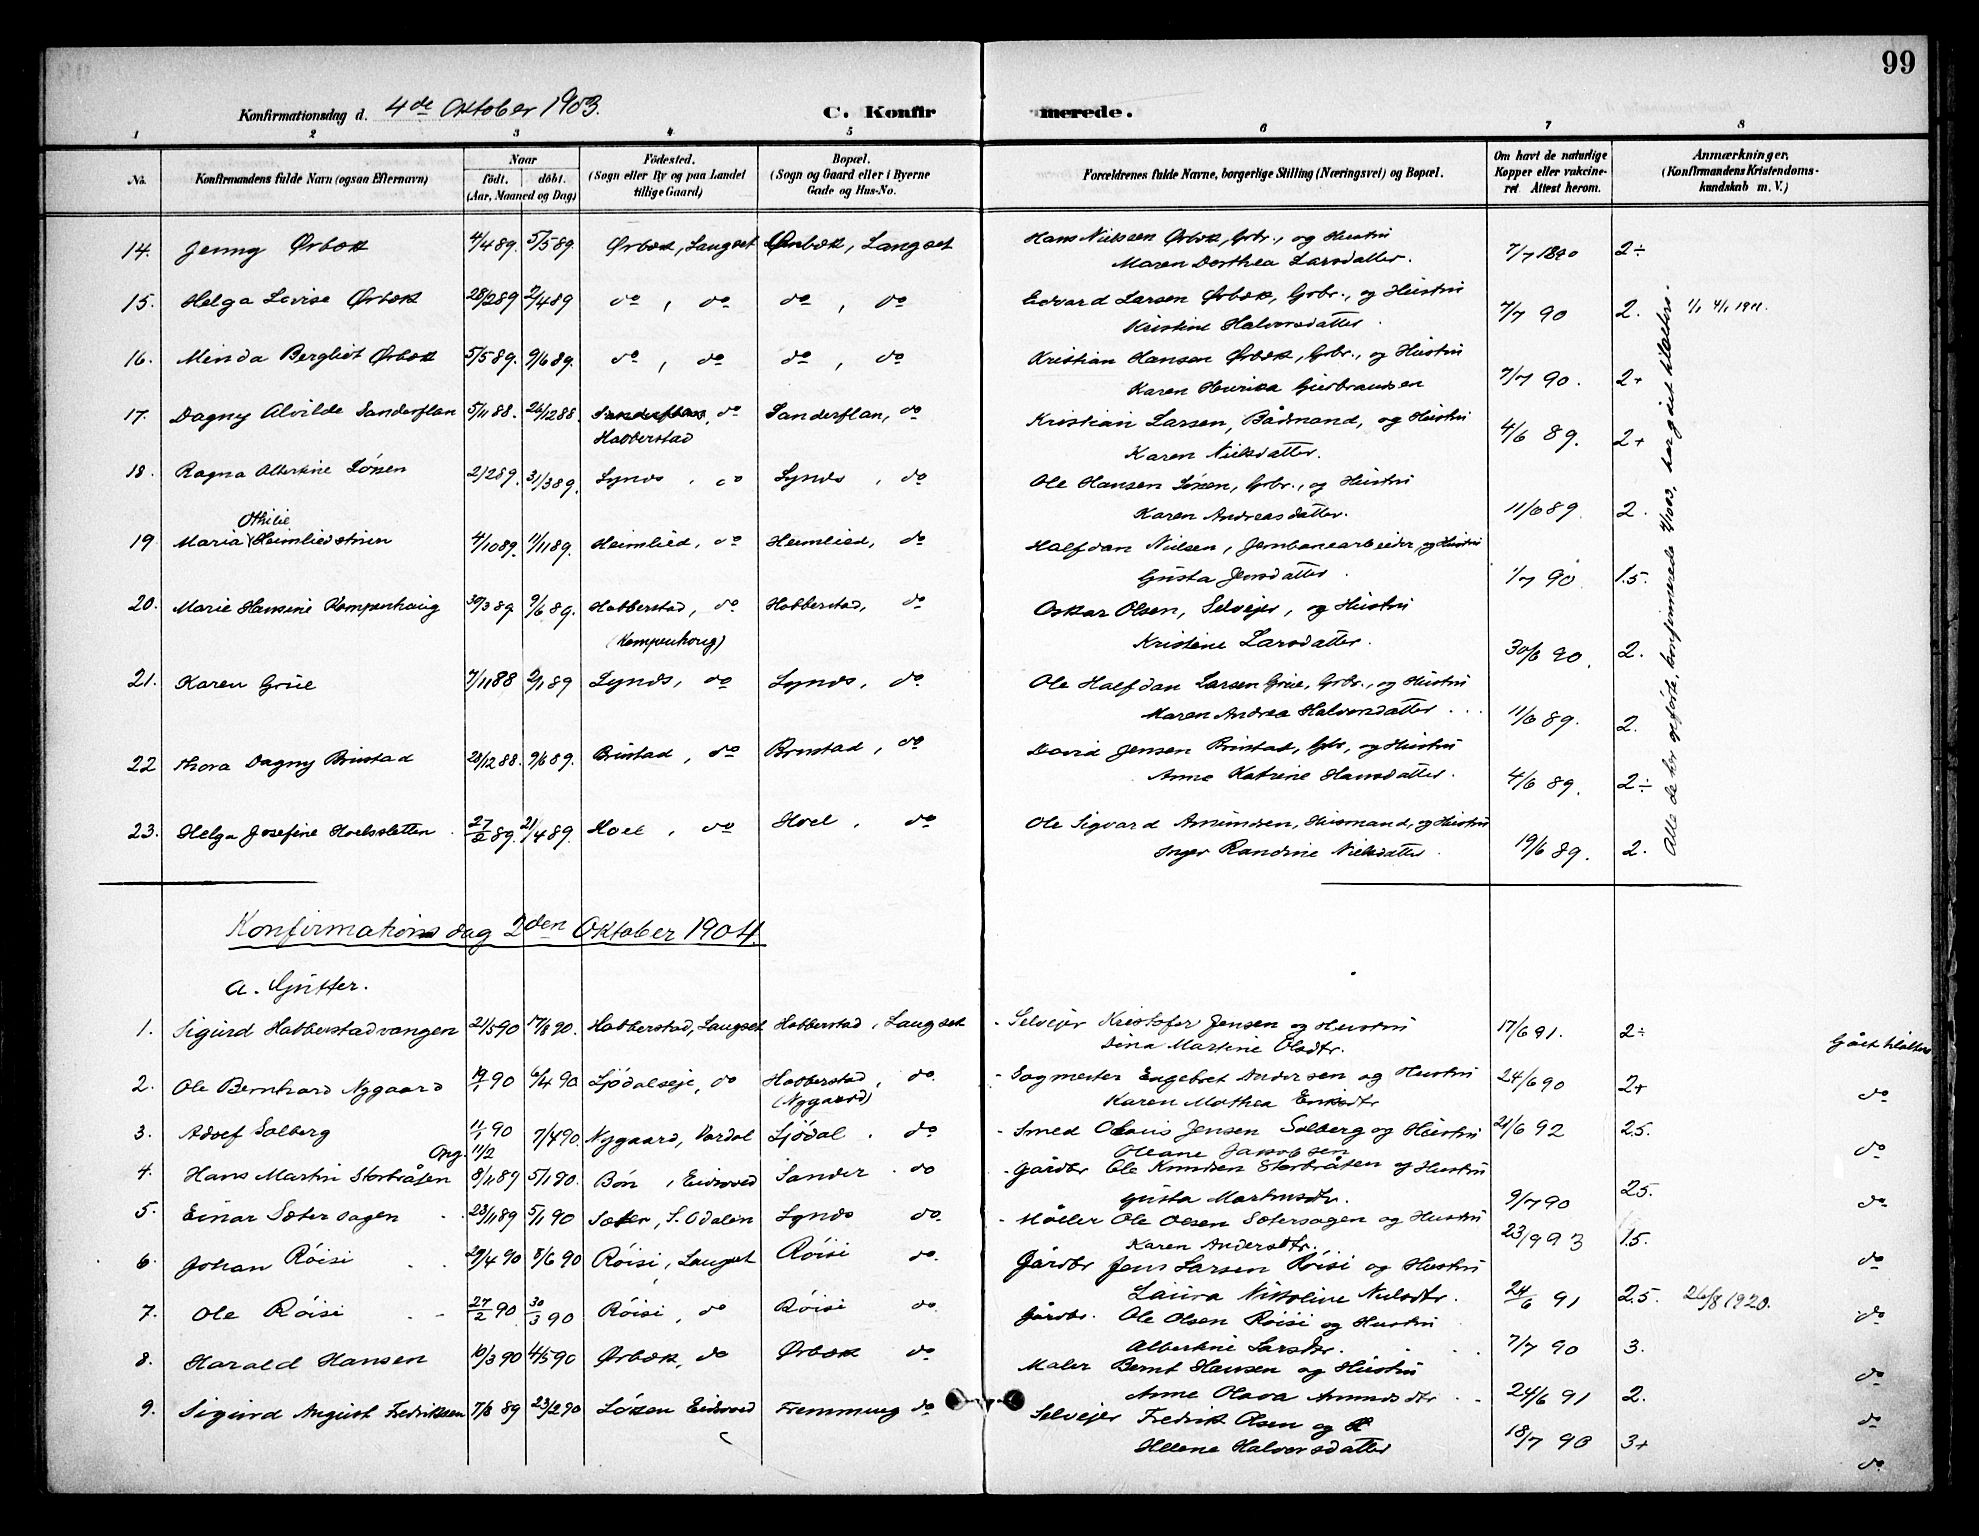 99
Konfirmationsdag d. 4de Oktober 1903. C. Konfirmerede.
1 2 3 4 5 6 7 8
No. Konfirmandens fulde Navn (ogsaa Efternavn) Naar födt. döbt. (Aar, Maaned og Dag) Födested. (Sogn eller By og paa Landet tillige Gaard) Bopæl. (Sogn og Gaard eller i Byerne Gade og Hus-No. Forældrenes fulde Navne, borgerlige Stilling (Næringsvei) og Bopæl. Om havt de naturlige Kopper eller vakcineret. Attest herom. Anmærkninger. (Konfirmandens Kristendomskundskab m. V.)
14. Jenny Ørbæk 4/4 89. 5/5 89. Ørbæk, Langset Ørbæk, Langset Hans Nielsen Ørbæk, Gbr., og Hustru 7/7 1890 2÷
Maren Dorthea Larsdatter.
15. Helga Lovise Ørbæk 28/2 89 2/4 89 do, do do, do Edvard Larsen Ørbæk, Gbr., og Hustru 7/7 90 2.
Kristine Halvorsdatter.
16. Minda Bergliot Ørbæk 5/5 89. 9/6 89. do, do do, do Kristian Hansen Ørbæk, Gbr., og Hustru 7/7 90. 2+
Karen Henrika Gulbrandsen
17. Dagny Alvilde Sanderflan 5/11 88. 26/12 88 Sanderflan, do Sanderflan, do Kristian Larsen, Bådmand, og Hustru 4/6 89. 2+
Habberstad Karen Nielsdatter.
18. Ragna Albertine Löken 2/2 89. 31/3 89. Lynds, do Lynds, do Ole Hansen Löken, Gbr., og Hustru 11/6 89. 2.
Karen Andreasdatter.
Othilie
19. Maria Heimliedstuen 4/10 89. 11/11 89. Heimlied, do Heimlied, do Halfdan Nielsen, Jernbanearbeider, og Hustru 1/7 90 1.5.
Gusta Jensdatter.
20. Marie Hansine Kompenhaug 30/3 89 9/6 89. Habberstad, do Habberstad, do Oskar Olsen, Selveier, og Hustru 30/6 90. 2.
(Kompenhoug) Kristine Larsdatter.
21. Karen Grue 7/11 88 2/1 89 Lynds, do Lynds, do Ole Halfdan Larsen Grue, Gbr., og Hustru 11/6 89. 2.
Maren Andrea Halvorsdatter
22 Thora Dagny Brustad 28/12 88. 9/6 89. Brustad, do Brustad, do David Jensen Brustad, Gbr, og Hustru 4/6 89. 2÷
Anne Katrine Hansdatter.
23. Helga Josefine Hoelsletten 27/2 89. 21/4 89. Hoel, do Hoel, do Ole Sigvard Amundsen, Husmand, og Hustru 19/6 89. 2.
Inger Randine Nielsdatter
Alle de her opförte, konfirmerede 4/10 03, har gået til alters.
Konfirmationsdag 2den Oktober 1904.
a. Gutter.
1. Sigurd Habberstadvangen 21/5 90 17/8 90. Habberstad, Langset Habberstad, Langset Selveier Kristofer Jensen og Hustru 17/6 91. 2÷ Gået til alters
Dina Martine Olsdtr.
2. Ole Bernhard Nygaard 19/1 90 6/4 90 Ljödalseje, do Habberstad, do Sagmester Engebret Andersen og Hustru 24/6 90 2+ do
(Nygaard) Karen Mathea Eriksdtr
3. Adolf Solberg 11/1 90 7/4 90. Nygaard, Vardal Ljödal. do Smed Olavis Jensen Solberg og Hustru 21/6 92 2.5. do
Oleane Jakobsen
4. Hans Martin Storbråten 8/11 89 5/1 90. Bön, Eidsvold Sander do Gårdbr Ole Knudsen Storbråten og Hustru 9/7 90 2.5. do
Gusta Martinsdtr.
5. Einar Sætersagen 23/11 89 5/1 90 Sæter, S. Odalen Lynds do Möller Ole Olsen Sætersagen og Hustru 23/9 93 1.5. do
Karen Andersdtr.
6. Johan Röisi 29/4 90 8/6 90 Röisi, Langset Röisi do Gårdbr Jens Larsen Röisi og Hustru 24/6 91 2.5. 26/8 1920. do
Laura Nikoline Nilsdtr.
7. Ole Röisi 27/2 90 30/3 90 Röisi, do Röisi do Gårdbr. Ole Olsen Röisi og Hustru 7/7 90 3. do
Albertine Larsdtr.
8. Harald Hansen 10/3 90 4/5 90 Ørbæk, do Ørbæk do Maler Bernt Hansen og Hustru 24/6 91 2. do
Anne Olava Amundsdtr
9. Sigurd August Fredriksen 7/8 89 23/2 90 Löken Eidsvold Fremming do Selveier Fredrik Olsen og H 18/7 90 3+ do
Helene Halvorsdatter